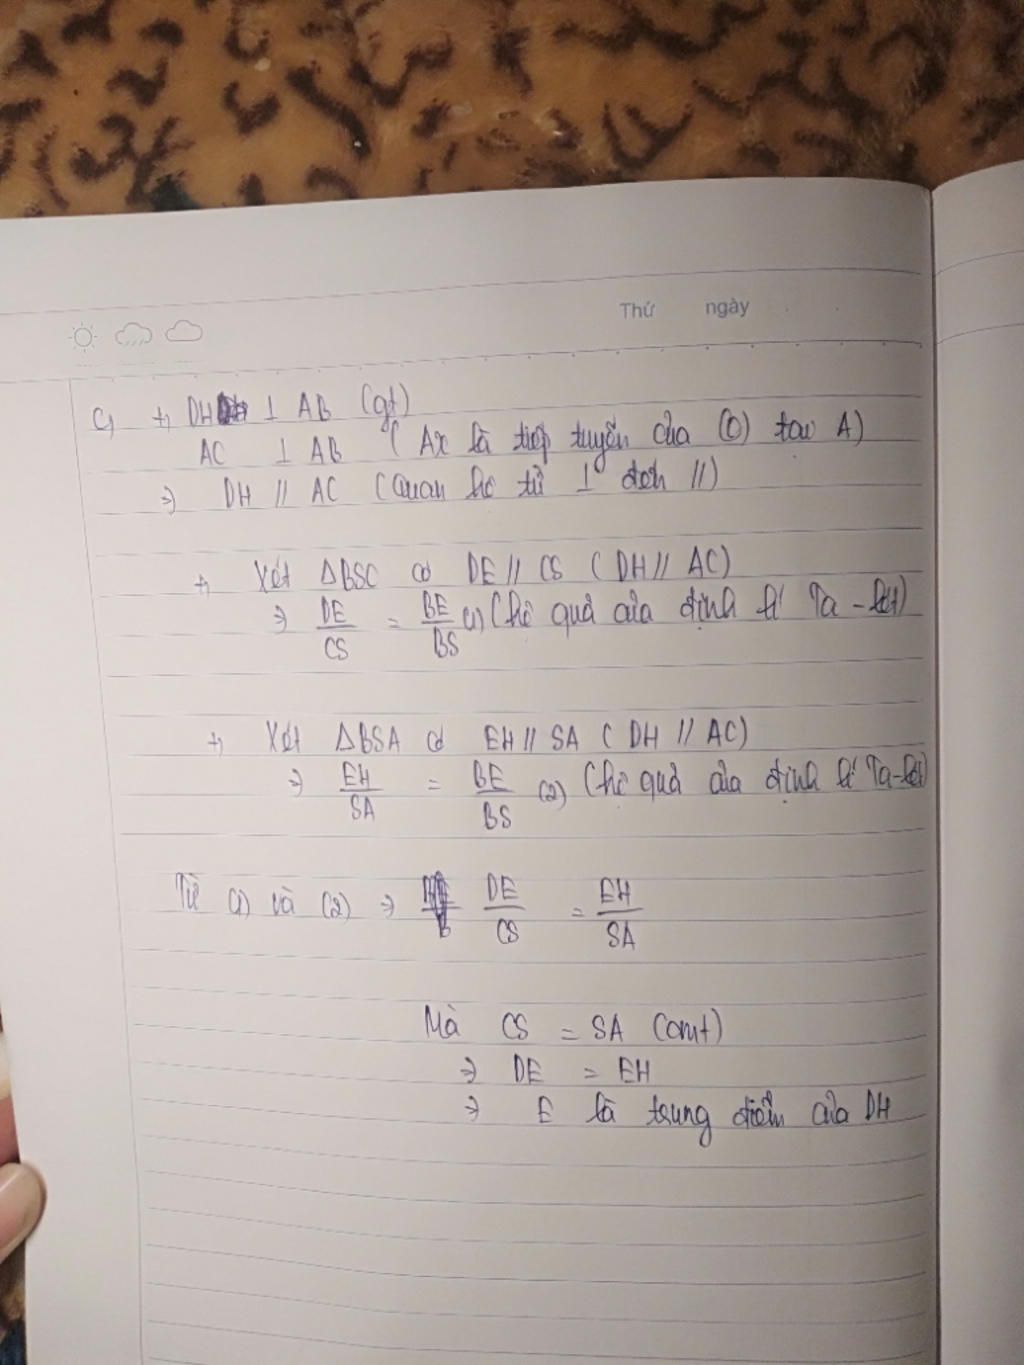 Thứ ngày
c, +, DH ⊥ AB (gt)
AC ⊥ AB (Ax là tiếp tuyến của (O) tại A)
⇒ DH // AC (Quan hệ từ ⊥ đến //)
+, Xét ΔBSC có DE // CS (DH // AC)
⇒ DE/CS = BE/BS (1) (hệ quả của định lí Ta-lét)
+, Xét ΔBSA có EH // SA (DH // AC)
⇒ EH/SA = BE/BS (2) (hệ quả của định lí Ta-lét)
Từ (1) và (2) ⇒ DE/CS = EH/SA
Mà CS = SA (cmt)
⇒ DE = EH
⇒ E là trung điểm của DH